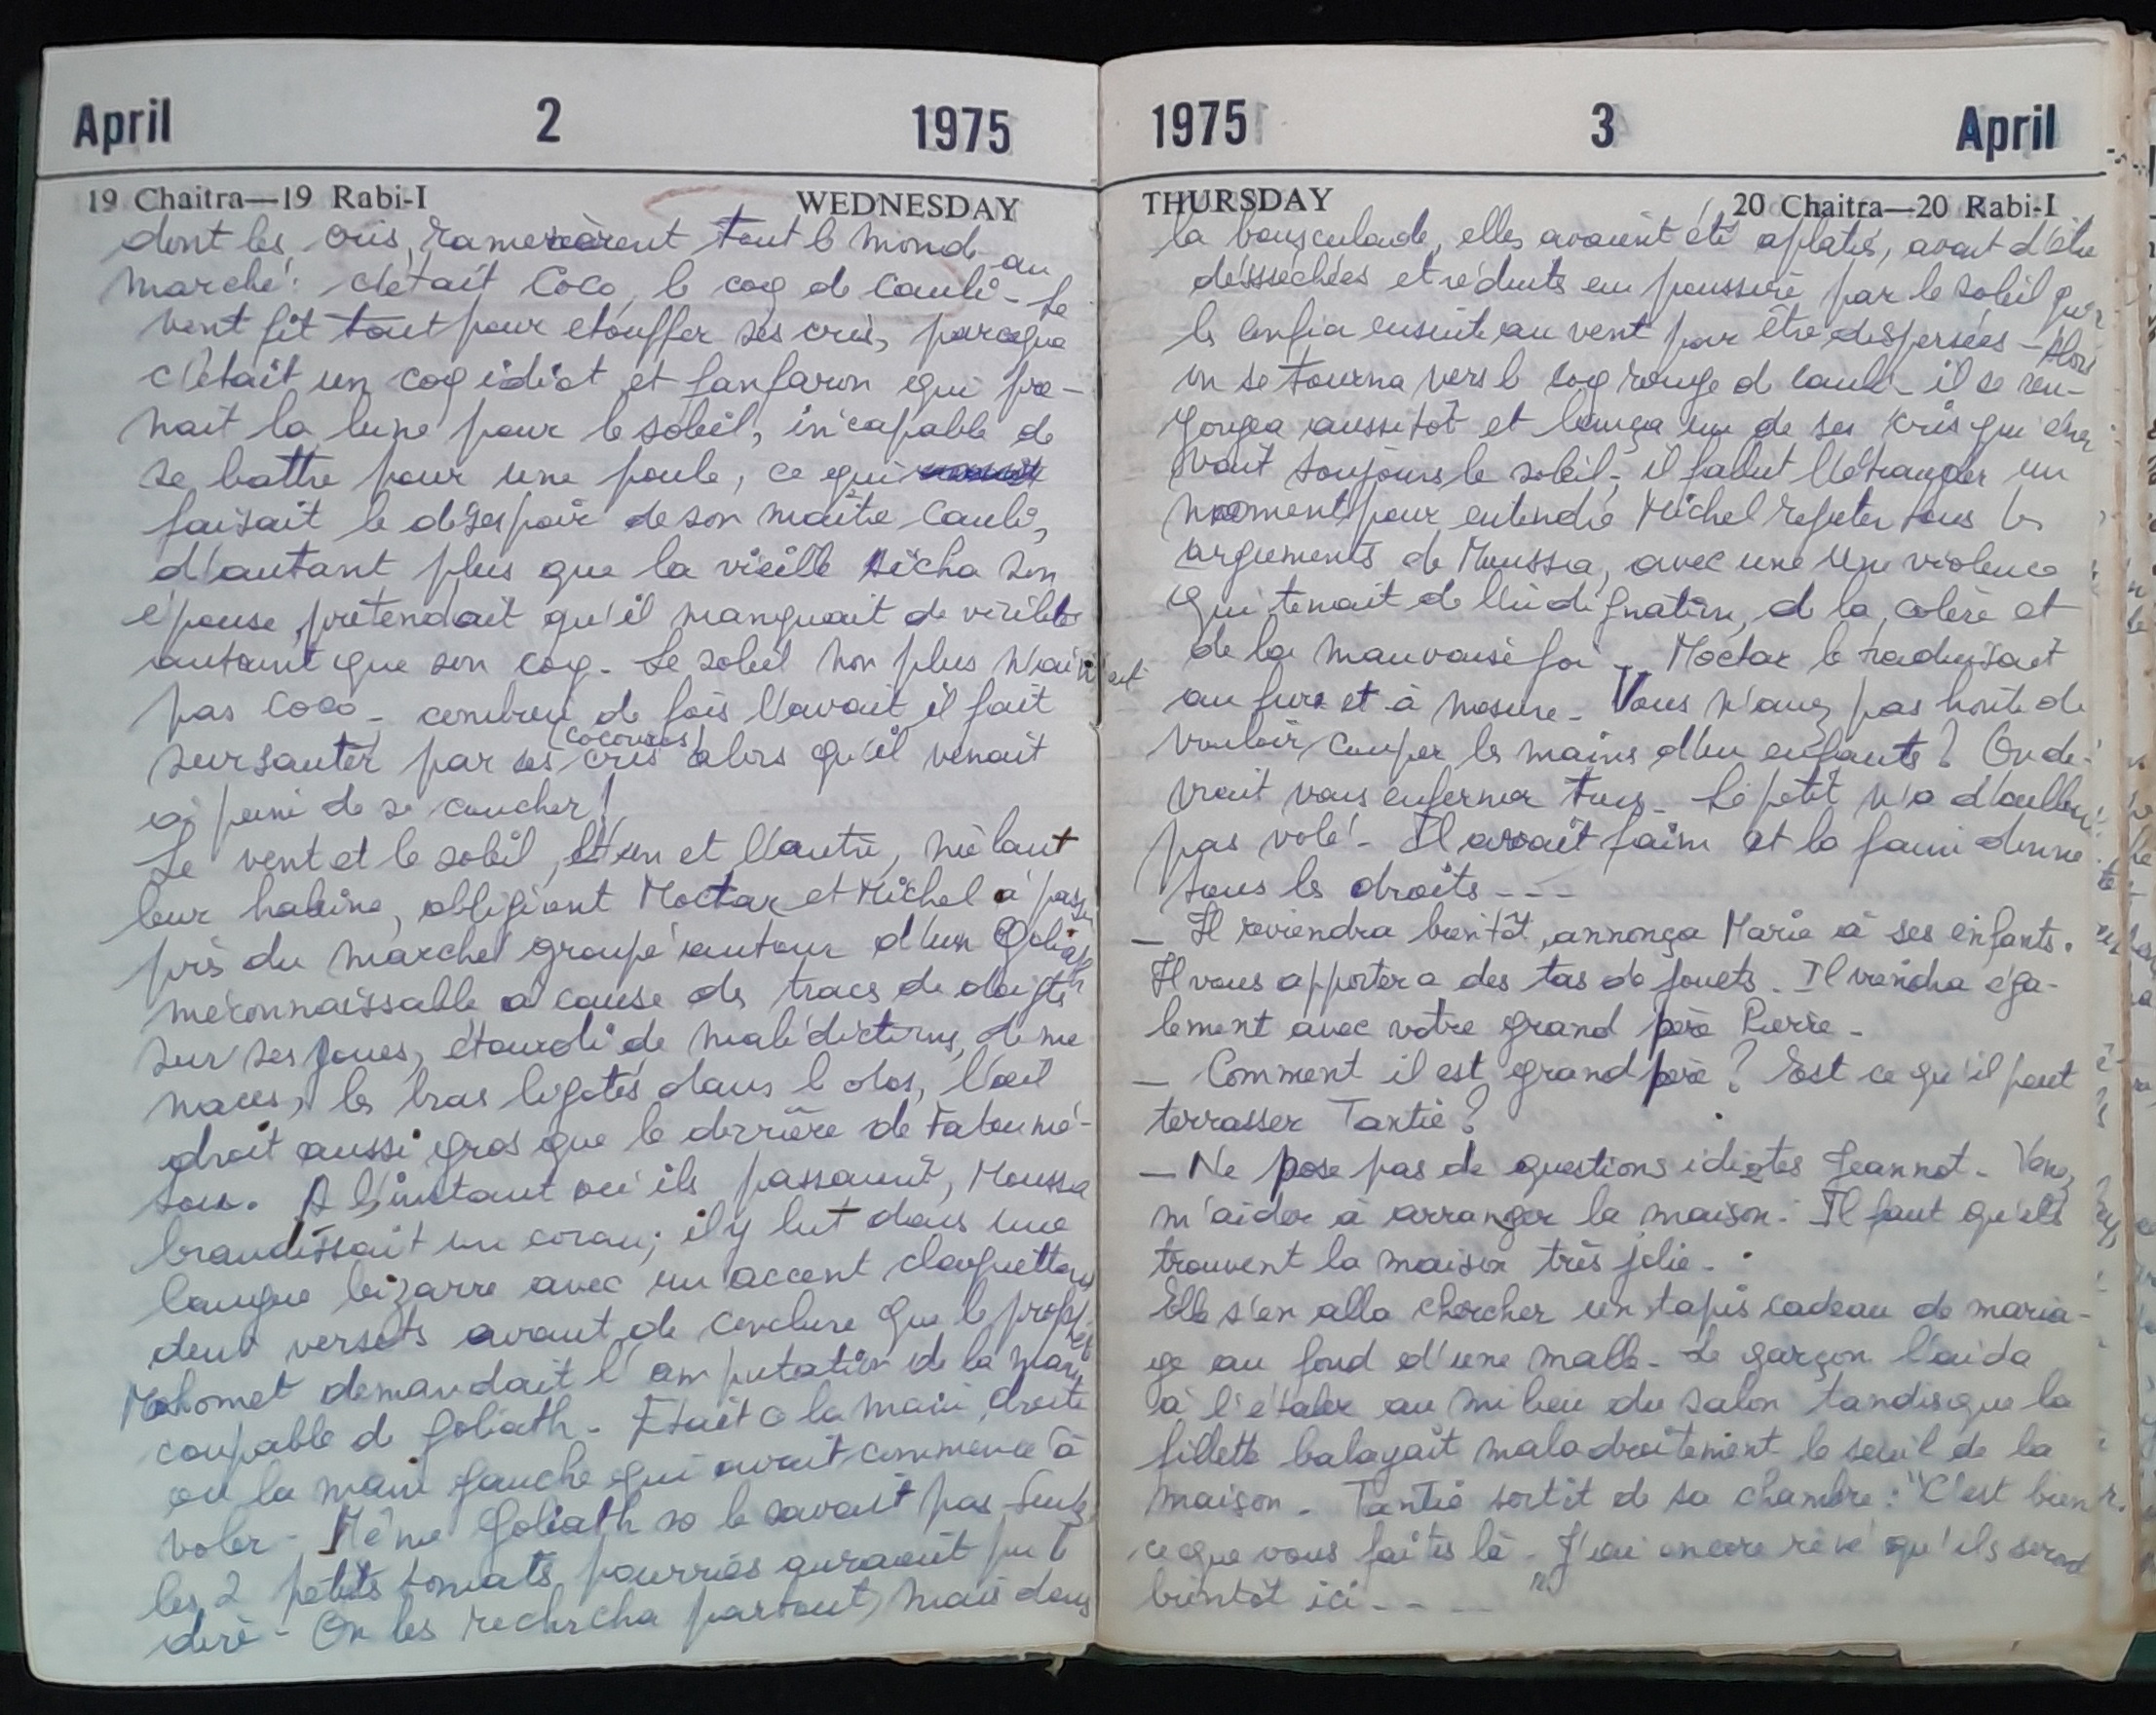 April 2 1975
19 Chaitra—19 Rabi-I WEDNESDAY
dont les cris ramenèrent tout le monde au
marché: c'était Coco, le coq de Caulé - Le
vent fit tout pour etouffer ses cris, parceque
c'était un coq idiot et fanfaron qui pre-
nait la lune pour le soleil, incapable de
se battre pour une poule, ce qui
faisait le désespoir de son maître Caulé,
d'autant plus que la vieille Aïcha son
épouse prétendait qu'il manquait de virilité
autant que son coq - Le soleil non plus n'aimait
pas Coco - combien de fois l'avait il fait
(cocoricos)
sursauter par ses cris alors qu'il venait
à peine de se coucher!
Le vent et le soleil, l'un et l'autre, mêlant
leur haleine, obligèrent Moctar et Michel à passer
près du marché groupé autour d'un Goliath
méconnaissable à cause des traces de doigts
sur ses joues, étourdi de malédictions, de me
naces, les bras ligotés dans le dos, l'œil
droit aussi gros que le derrière de Fatoumé-
tou. A l'instant où ils passaient, Moussa
brandissait un coran; il y lut dans une
langue bizarre avec un accent
deux versets avant de conclure que le prophète
Mahomet demandait l'amputation de la main
coupable de Goliath - Etait ce la main droite
ou la main gauche qui avait commencé à
voler - Même Goliath ne le savait pas. Seules
les 2 petites tomates pourries auraient pu le
dire - On les rechercha partout, mais dans
1975 3 April
THURSDAY 20 Chaitra—20 Rabi-I
la bousculade, elles avaient été aplaties, avant d'être
désséchées et réduites en poussière par le soleil qui
les confia ensuite au vent pour être dispersées - Alors
on se tourna vers le coq rouge de Caulé - il se ren-
gorgea aussitôt et lança un de ses cris qui éner
vait toujours le soleil; il fallut l'étrangler un
moment pour entendre Michel réfuter tous les
arguments de Moussa, avec une une violence
qui tenait de l'indignation, de la colère et
de la mauvaise foi - Moctar le traduisait
au fur et à mesure - Vous n'avez pas honte de
vouloir couper les mains d'un enfants? On de-
vrait vous enfermer tous - Le petit n'a d'ailleurs
pas volé - Il avait faim et la faim donne
tous les droits ---
— Il reviendra bientôt, annonça Marie à ses enfants.
Il vous apportera des tas de jouets. Il viendra éga-
lement avec votre grand père Pierre -
— Comment il est grand père? Est ce qu'il peut
terrasser Tantie?
— Ne pose pas de questions idiotes Jeannot - Venez
m'aider à arranger la maison. Il faut qu'ils
trouvent la maison très jolie -
Elle s'en alla chercher un tapis cadeau de maria-
ge au fond d'une malle - Le garçon l'aida
à l'étaler au milieu du salon tandisque la
fillette balayait maladroitement le seuil de la
maison - Tantie sortit de sa chambre: "C'est bien
ce que vous faites là - J'ai encore rêvé qu'ils seront
bientôt ici - - - "